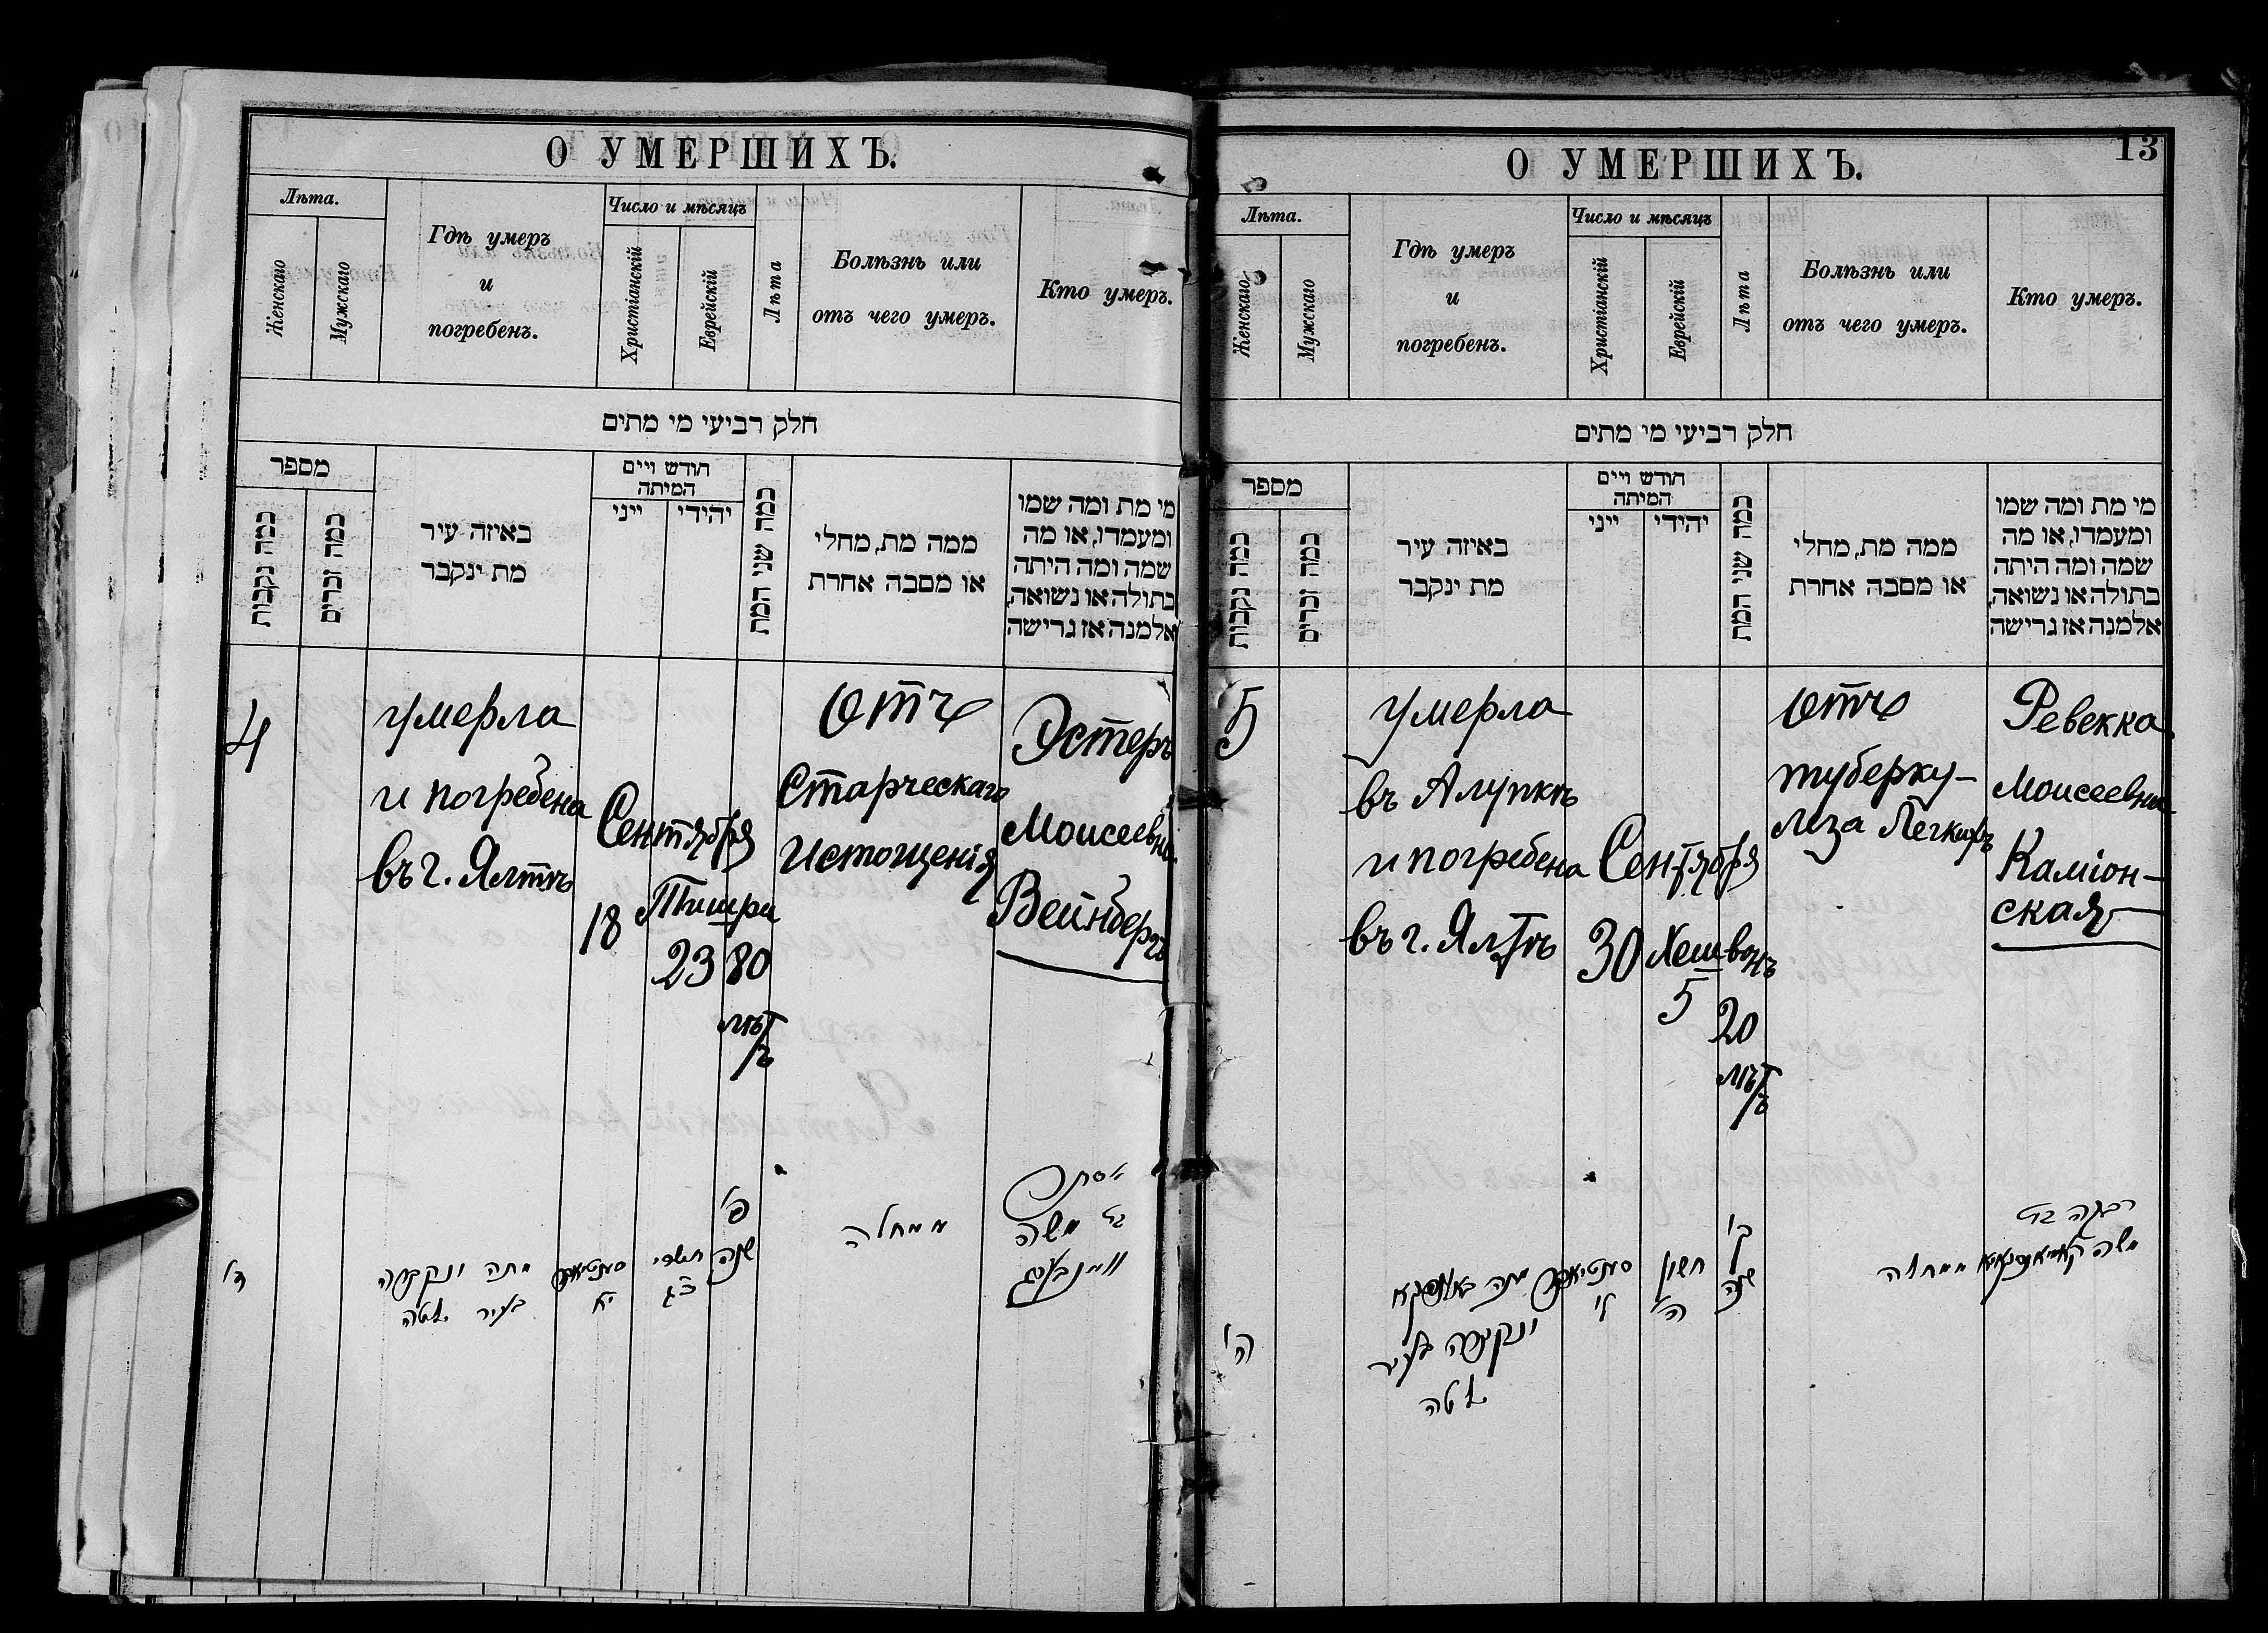 О УМЕРШИХЪ.
Лѣта.
Женскаго
Мужскаго
Гдѣ умеръ
и
погребенъ.
Число и мѣсяцъ
Христіанскій
Еврейскій
Лѣта
Болѣзнь или
отъ чего умеръ.
Кто умеръ.
חלק רביעי מי מתים
מספר
כמה נקבות
כמה זכרים
באיזה עיר
מת ינקבר
חודש ויים
המיתה
ייני
יהידי
כמה שני המת
ממה מת, מחלי
או מסבה אחרת
מי מת ומה שמו
ומעמדו, או מה
שמה ומה היתה
בתולה או נשואה,
אלמנה אז גרישה
4
умерла
и погребена
въ г. Ялтѣ
Сентября
18
Тишри
23
80
лѣтъ
Отъ
Старческаго
Истощенія
Эстеръ
Моисеевна
Вейнбергъ
ד'
מתה ונקברה
בעיר
יח
תשרי
כג
פ'
שנה
ממחלה
אסתר
בת משה
וויינבערג
13
О УМЕРШИХЪ.
Лѣта.
Женскаго
Мужскаго
Гдѣ умеръ
и
погребенъ.
Число и мѣсяцъ
Христіанскій
Еврейскій
Лѣта
Болѣзнь или
отъ чего умеръ.
Кто умеръ.
חלק רביעי מי מתים
מספר
כמה נקבות
כמה זכרים
באיזה עיר
מת ינקבר
חודש ויים
המיתה
ייני
יהידי
כמה שני המת
ממה מת, מחלי
או מסבה אחרת
מי מת ומה שמו
ומעמדו, או מה
שמה ומה היתה
בתולה או נשואה,
אלמנה אז גרישה
5
Умерла
въ Алупкѣ
и погребена
въ г. Ялтѣ
Сентября
30
Хешвонъ
5
20
лѣтъ
Отъ
туберку-
леза Легкихъ
Ревекка
Моисеевна
Каміон-
ская
ה'
מתה
ונקברה בעיר
ל'
חשון
ה'
כ'
שנה
ממחלה
רבקה בת
משה